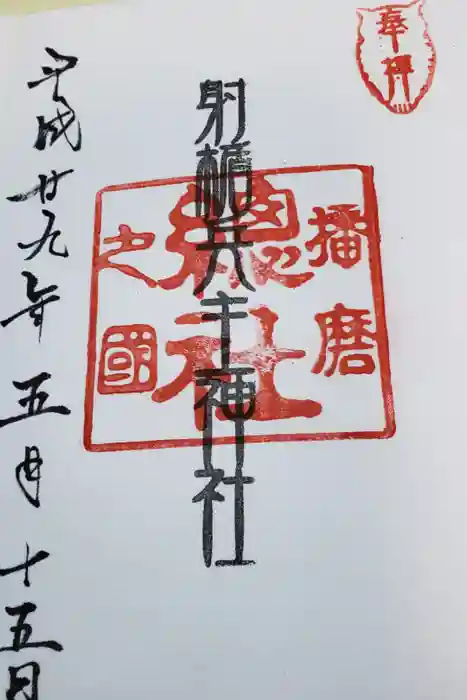 奉拝
播磨
総社
之國
射楯兵主神社
平成廿九年五月十五日